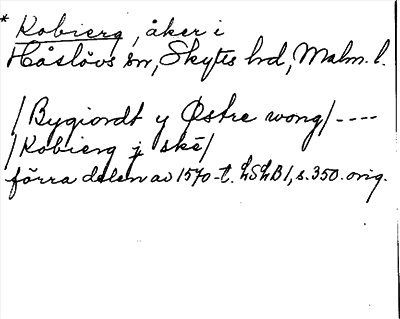 * Kobierg, åker i
Håslövs sn, Skytts hd, Malm. l.
/Bygiordt y Østre wong/ ----
/Kobierg j skē/
förra delen av 1570-t. LSLB1, s. 350. orig.